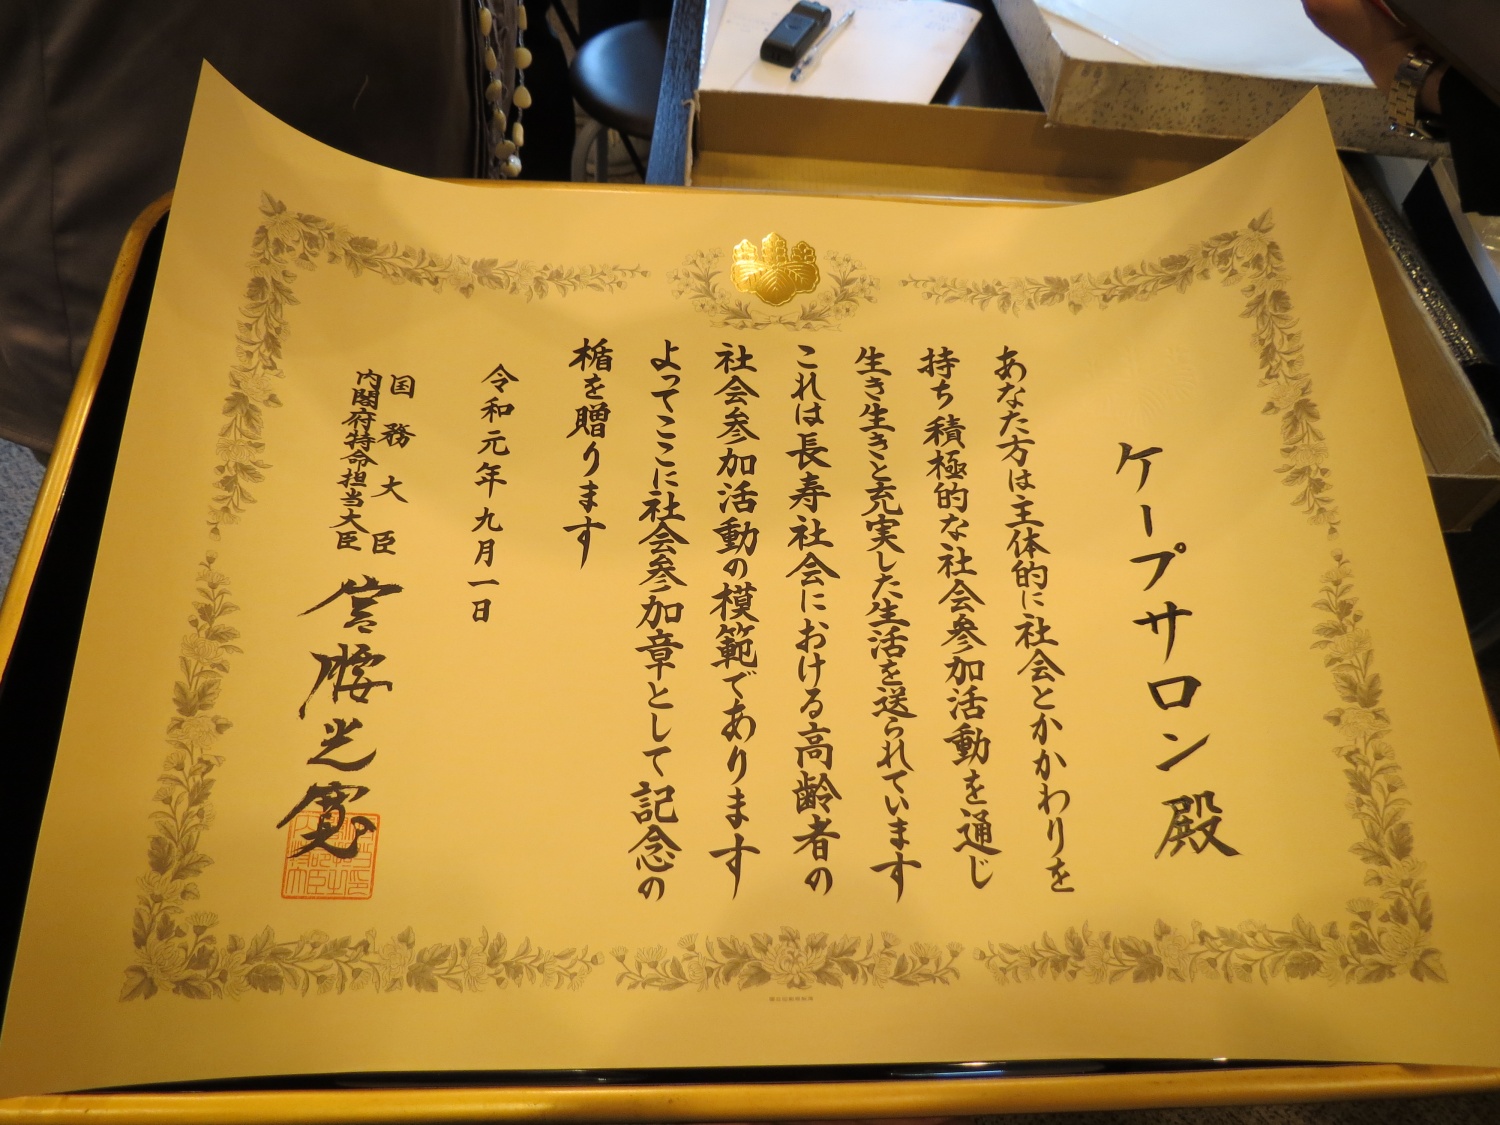 ケープサロン殿
あなた方は主体的に社会とかかわりを
持ち積極的な社会参加活動を通じ
生き生きと充実した生活を送られています
これは長寿社会における高齢者の
社会参加活動の模範であります
よってここに社会参加章として記念の
楯を贈ります
令和元年九月一日
国務大臣
内閣府特命担当大臣
宮腰光寛